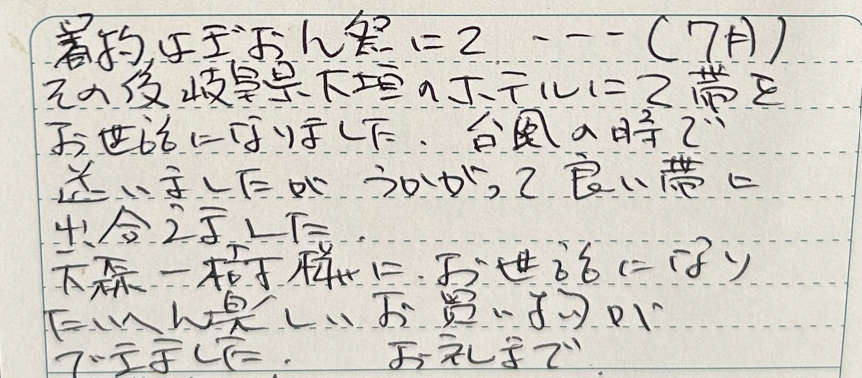 着物はぎおん祭にて ---(7月)
その後岐阜県大垣のホテルにて帯を
お世話になりました. 台風の時で
迷いましたが うかがって良い帯に
出合えました.
大森 様に.お世話になり
たいへん楽しいお買いものが
できました. お礼まで